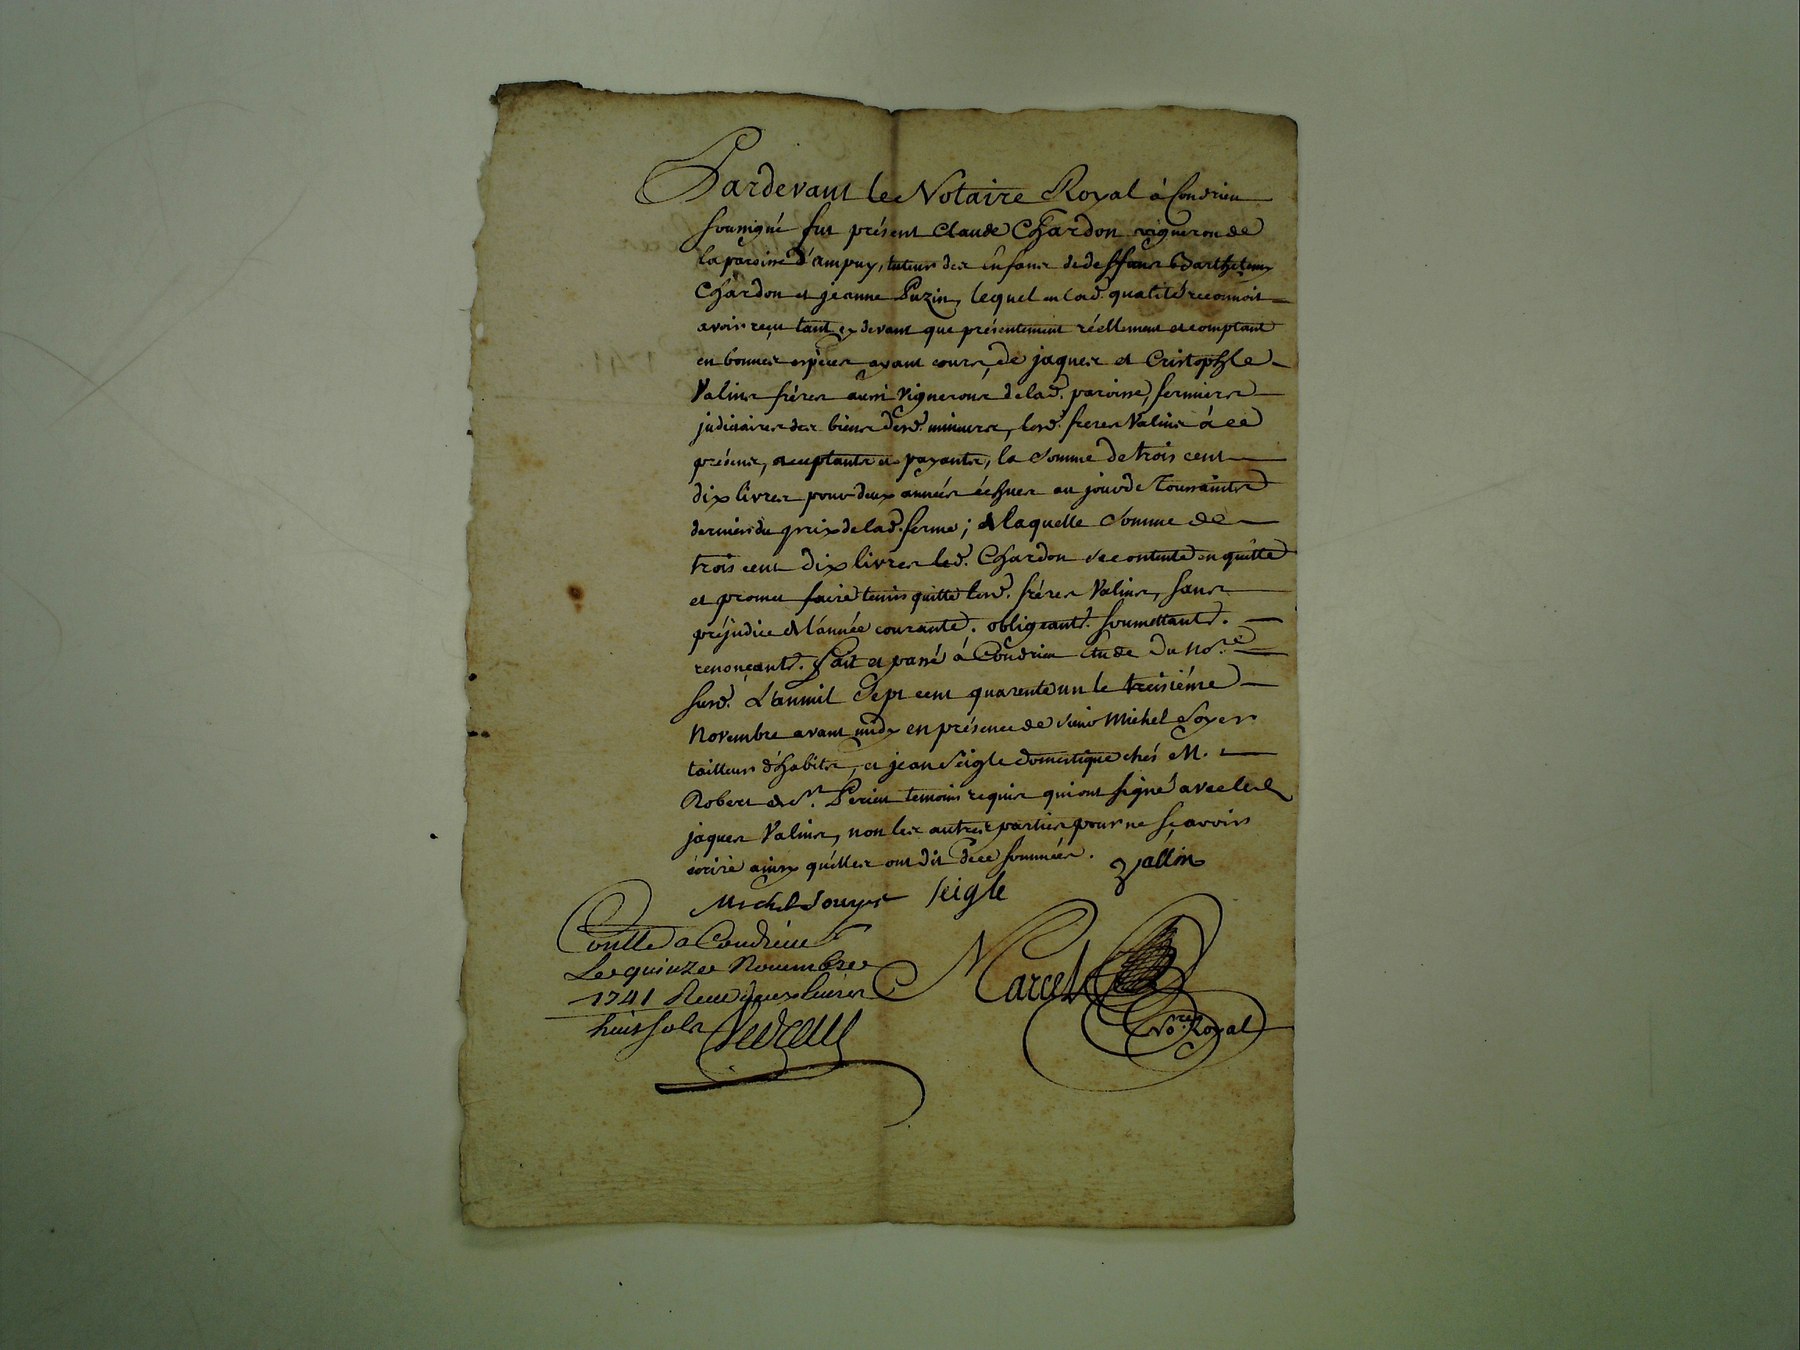 Pardevant le Notaire Royal à Condrieu
soussigné fut présent Claude Chardon vigneron de
la paroisse d'ampuy, tuteur des enfans de deffuns Barthelemy
Chardon et jeanne Puzin, lequel en lad. qualité reconnoit
avoir reçu tant cy devant que présentement réellement et comptant
en bonnes espèces ayant cours, de jaques et Cristophle
Valins fréres aussi vignerons de lad. paroisse, fermiers
judiciaires des biens desd. mineurs, lesd. freres Valins à ce
présens, acceptants et payants, la somme de trois cent
dix livres pour deux années échues au jour de Toussaints
dernier du prix de lad. ferme; de laquelle somme de
trois cent dix livres led. Chardon se contente en quitte
et promet faire tenir quitte lesd. fréres Valins, sans
préjudice de l'année courante. obligeant. soumettant.
renonçant. fait et passé à Condrieu étude du No.re
susd. L'an mil sept cent quarente un le troisiéme
Novembre avant midy en présence de sieur Michel Soyer
tailleur d'habits, et jean Seigle domestique chés M.
Robert de St. Perieu temoins requis qui ont signé avec led.
jaques Valins, non les autres parties pour ne sçavoir
écrire ainsy qu'elles ont dit de ce sommées.
Vallin
Michel Souyer Seigle
Conllé a Condrieu
Le quinze Nouembre
1741 Receu deux liures
huit sols
Marcel
No.re Royal